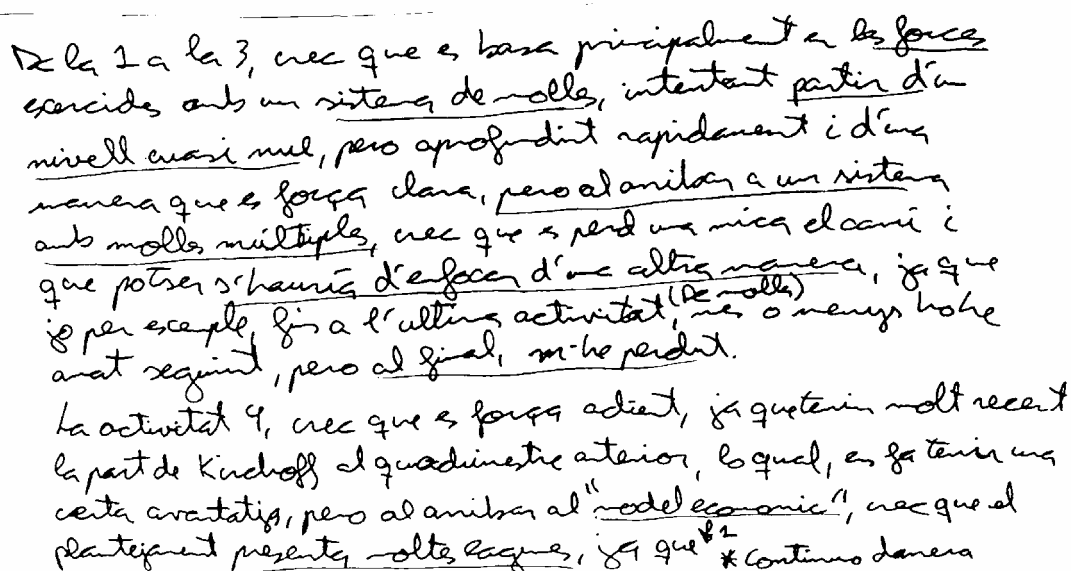 De la 1 a la 3, crec que es basa principalment en les forces
exercides amb un sistema de molles, intentant partir d'un
nivell cuasi nul, pero aprofundint rapidament i d'una
manera que es força clara, pero al arribar a un sistema
amb molles múltiples, crec que es perd una mica el camí i
que potser s'hauria d'enfocar d'una altra manera, ja que
jo per exemple, fins a l'ultima activitat (De molles), mes o menys ho he
anat seguint, pero al final, m'he perdut.
La activitat 4, crec que es força adient, ja que tenim molt recent
la part de Kirchoff al quadrimestre anterior, lo qual, es fa tenir una
certa avantatja, pero al arribar al "model economic", crec que el
plantejament presenta moltes llagunes, ja que *1
* Continuo darrera